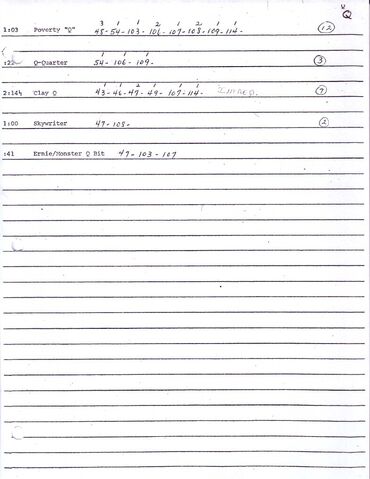 Q
3 1 1 2 1 2 1 1
1:03 Poverty "Q" 48-54-103-106-107-108-109-114- 12
1 1 1
:22 Q-Quarter 54-106-109- 3
1 1 2 1 1 1
2:14½ Clay Q 43-46-47-49-107-114- 7
1:00 Skywriter 47-108- 2
:41 Ernie/Monster Q Bit 47-103-107